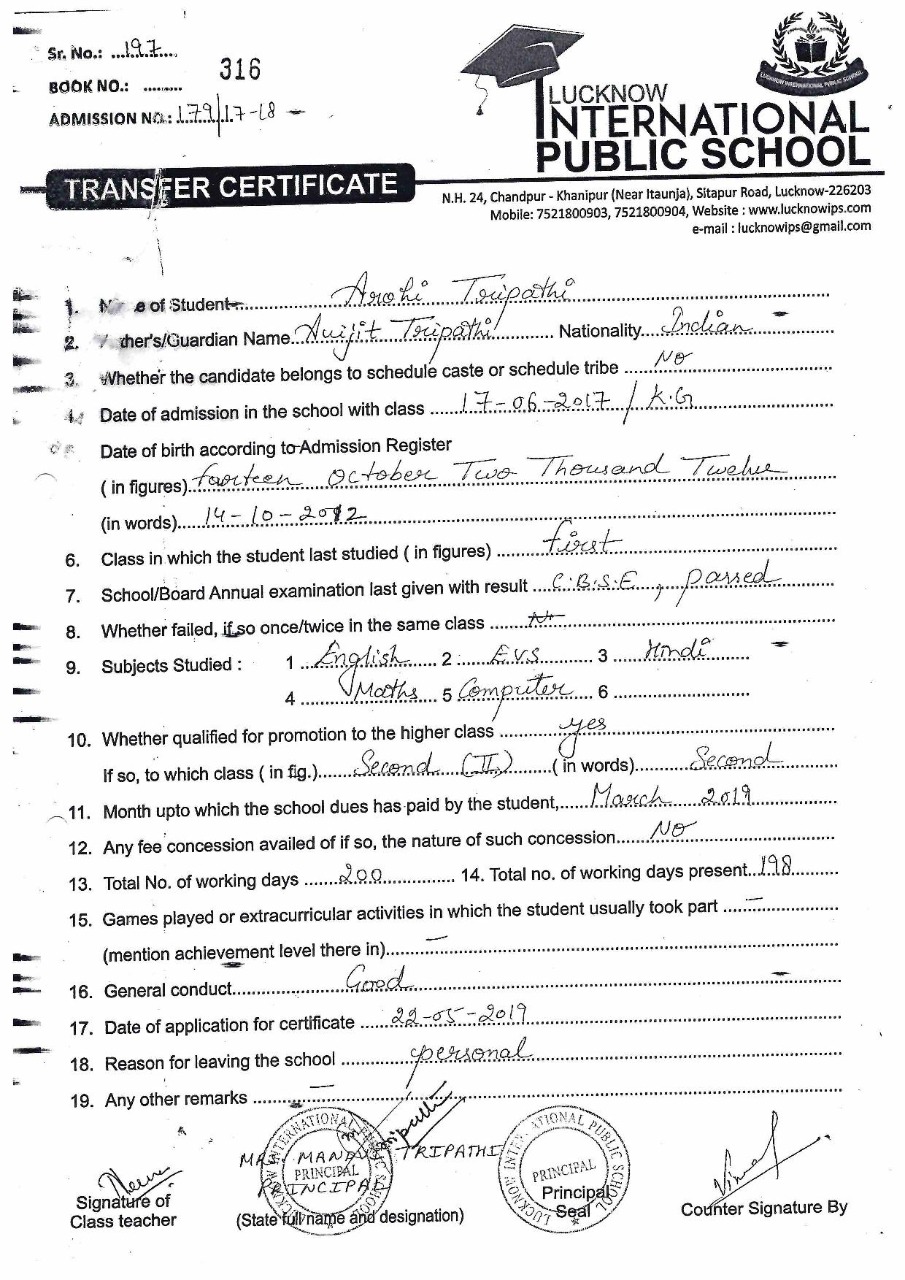 Sr. No.: ...197....
316
BOOK NO.: ..........
ADMISSION NO.: 179/17-18 -
LUCKNOW
INTERNATIONAL
PUBLIC SCHOOL
LUCKNOW INTERNATIONAL PUBLIC SCHOOL
TRANSFER CERTIFICATE
N.H. 24, Chandpur - Khanipur (Near Itaunja), Sitapur Road, Lucknow-226203
Mobile: 7521800903, 7521800904, Website : www.lucknowips.com
e-mail : lucknowips@gmail.com
1. of Student Arohi Tripathi
2. Guardian Name Avijit Tripathi Nationality Indian
3. Whether the candidate belongs to schedule caste or schedule tribe No
4. Date of admission in the school with class 17-06-2017 / K.G
Date of birth according to Admission Register
( in figures) fourteen October Two Thousand Twelve
(in words) 14-10-2012
6. Class in which the student last studied ( in figures) first
7. School/Board Annual examination last given with result C.B.S.E, passed
8. Whether failed, if so once/twice in the same class
9. Subjects Studied : 1 English 2 E.V.S 3 Hindi
4 Maths 5 Computer 6
10. Whether qualified for promotion to the higher class yes
If so, to which class ( in fig.) Second (II) ( in words) Second
11. Month upto which the school dues has paid by the student, March 2019
12. Any fee concession availed of if so, the nature of such concession No
13. Total No. of working days 200 14. Total no. of working days present 198
15. Games played or extracurricular activities in which the student usually took part —
(mention achievement level there in) —
16. General conduct Good
17. Date of application for certificate 22-05-2019
18. Reason for leaving the school personal
19. Any other remarks —
TRIPATHI
PRINCIPAL
PRINCIPAL
INTERNATIONAL PUBLIC SCHOOL LUCKNOW
PRINCIPAL
LUCKNOW INTERNATIONAL PUBLIC SCHOOL
Signature of
Class teacher
(State full name and designation)
Principal
Seal
Counter Signature By